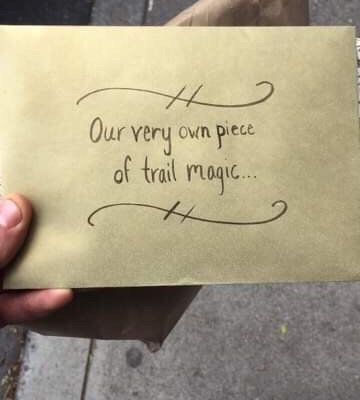 Our very own piece
of trail magic...